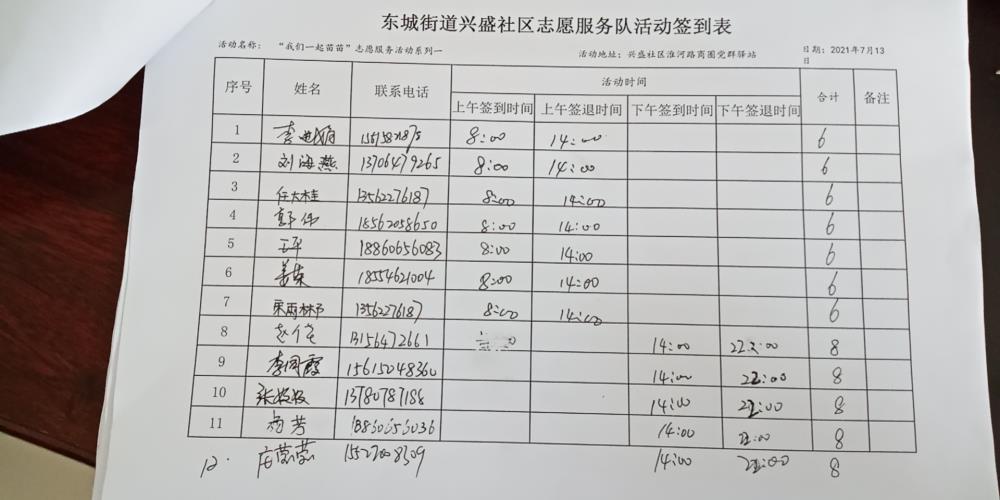 东城街道兴盛社区志愿服务队活动签到表
活动名称： “我们一起苗苗”志愿服务活动系列一 活动地址：兴盛社区淮河路商圈党群驿站 日期：2021年7月13
日
序号 姓名 联系电话 活动时间 合计 备注
上午签到时间 上午签退时间 下午签到时间 下午签退时间
1 李 8:00 14:00 6
2 刘海燕 13706479265 8:00 14:00 6
3 任大桂 13562276187 8:00 14:00 6
4 郭伟 18562058650 8:00 14:00 6
5 王平 18860656083 8:00 14:00 6
6 姜荣 18554621004 8:00 14:00 6
7 13562276187 8:00 14:00 6
8 13156472661 14:00 22:00 8
9 李同霞 15615248360 14:00 22:00 8
10 张 13780787188 14:00 22:00 8
11 杨芳 18860656036 14:00 22:00 8
12. 14:00 22:00 8